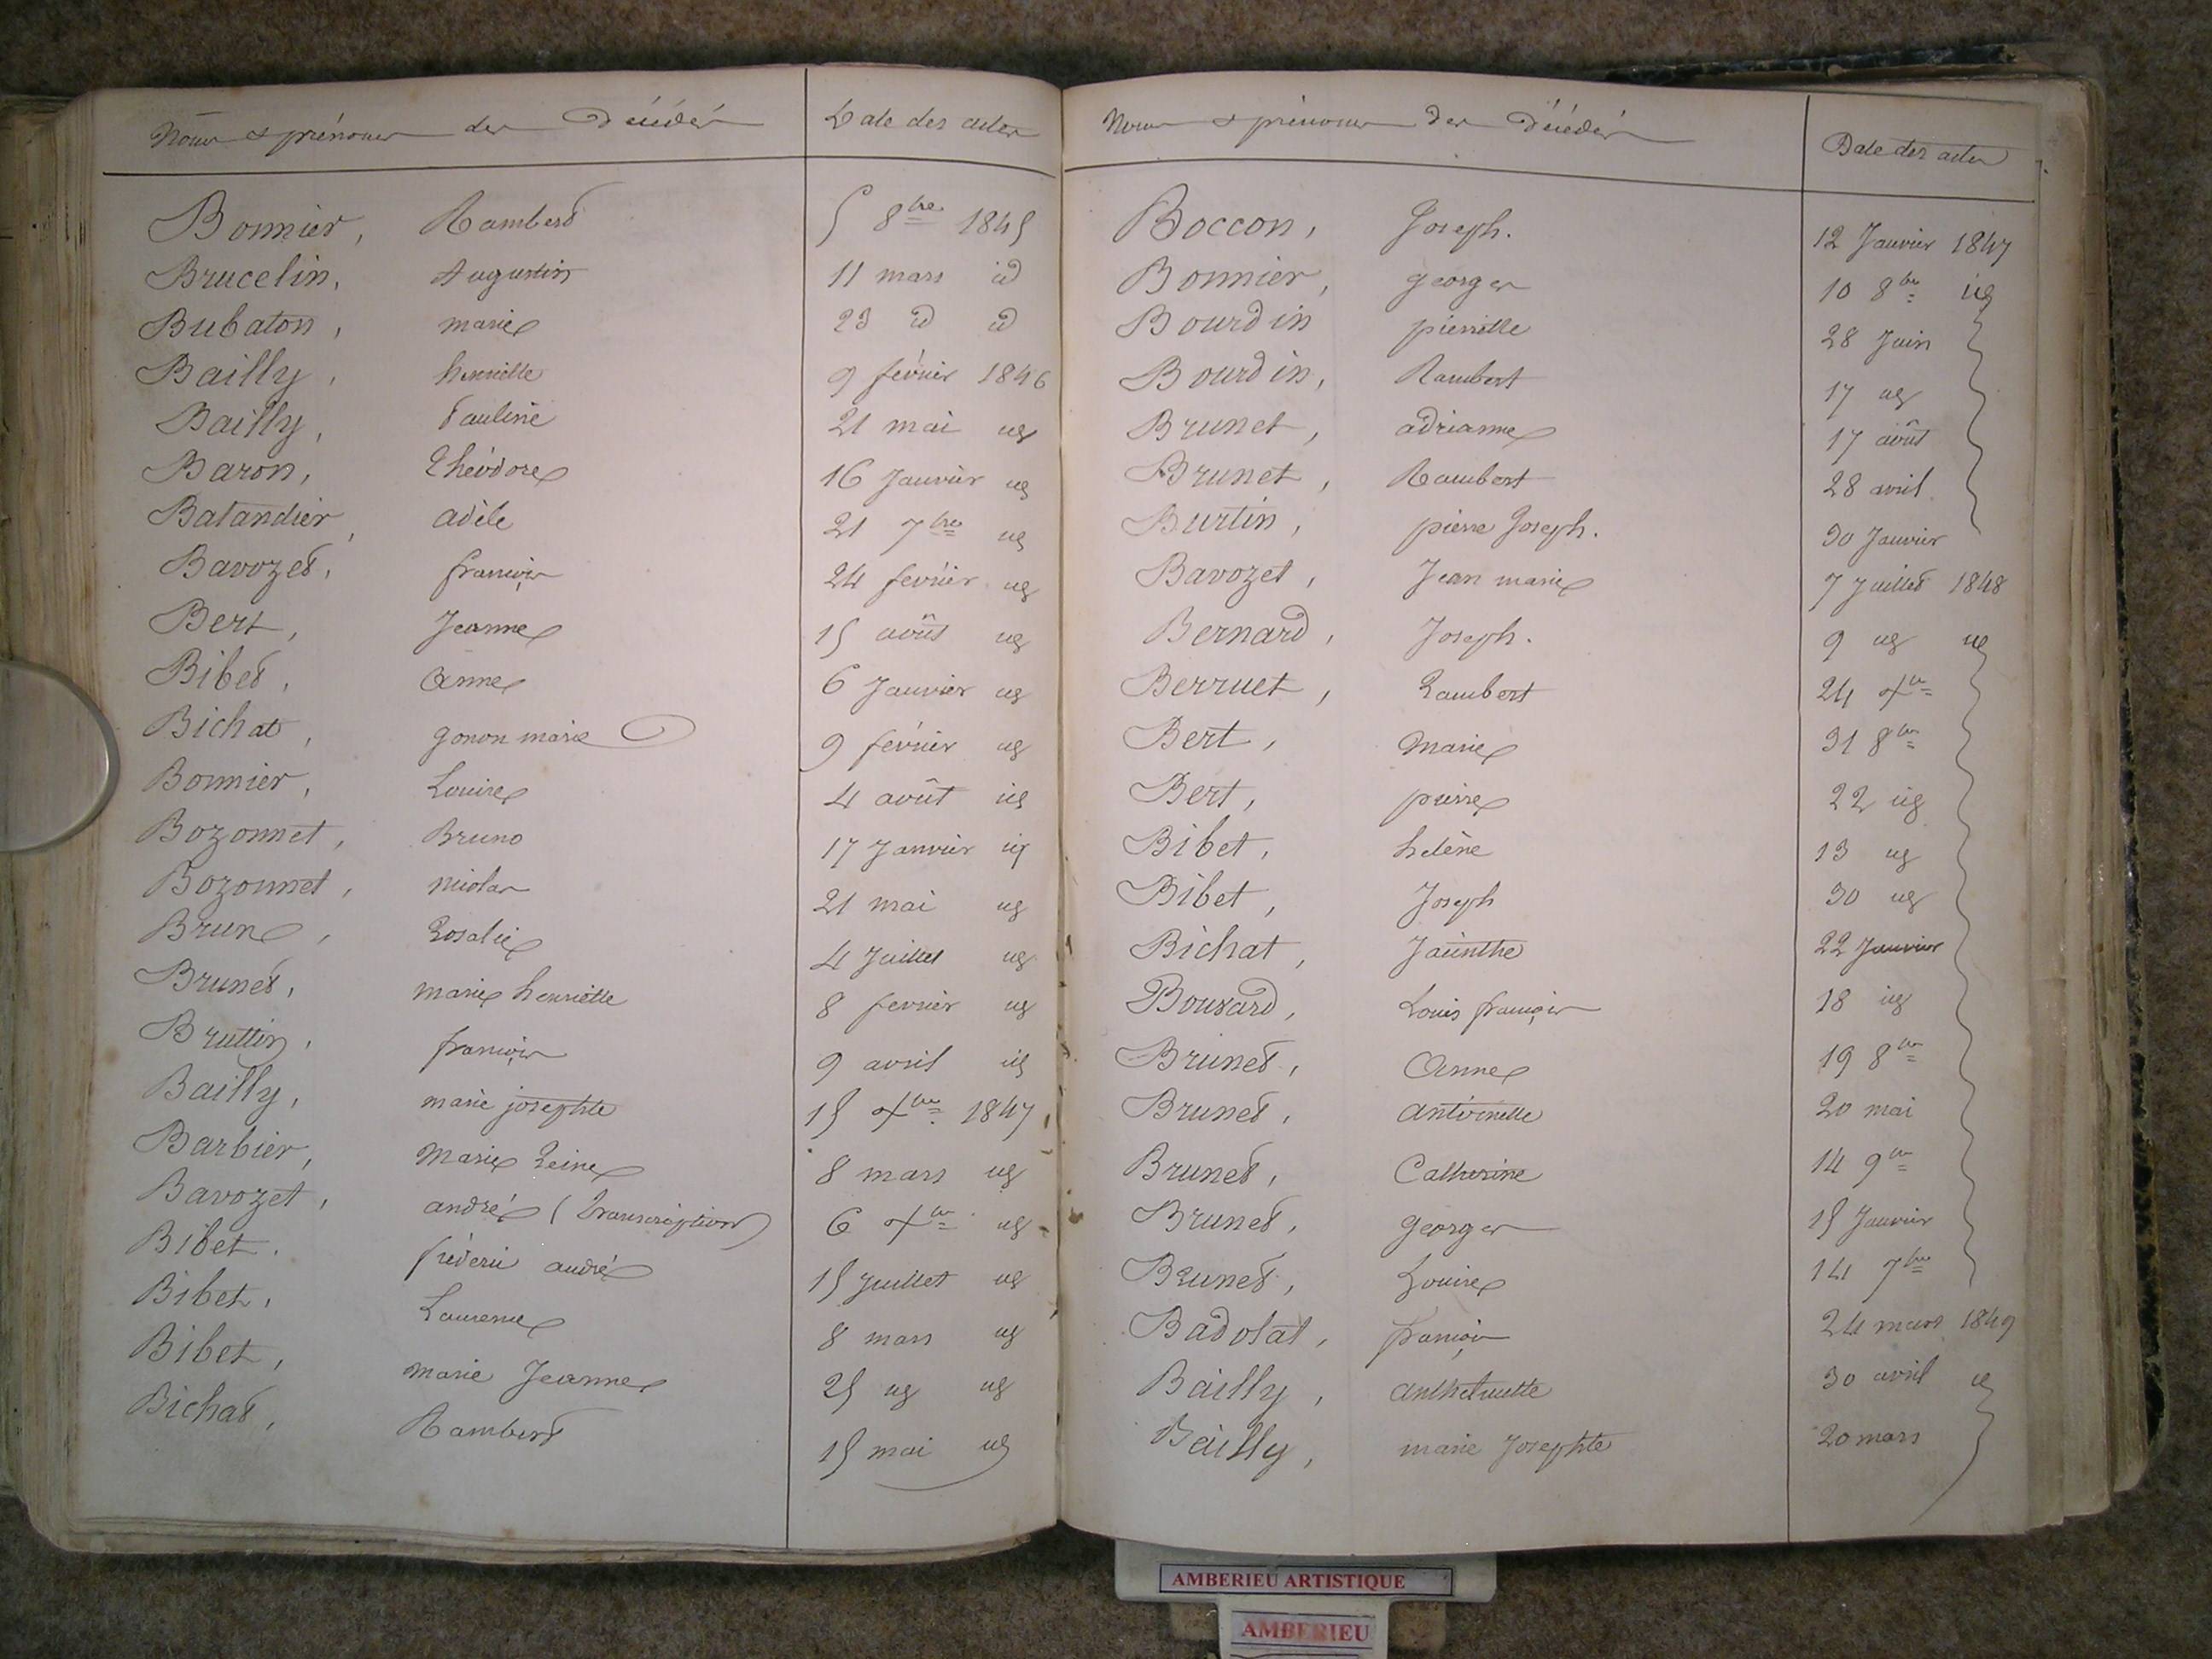 Noms & prénoms des Décédés Date des actes
Bonnier, Rambert 5 8bre 1845
Brucelin, Augustin 11 mars id
Bubaton, marie 23 id id
Bailly, henriette 9 février 1846
Bailly, Pauline 21 mai id
Baron, Théodore 16 Janvier id
Batandier, adèle 21 7bre id
Bavozet, françois 24 fevrier id
Bert, Jeanne 15 août id
Bibet, Anne 6 Janvier id
Bichat, gonon marie 9 février id
Bonnier, Louise 4 août id
Bozonnet, Bruno 17 Janvier id
Bozonnet, nicolas 21 mai id
Brun, Rosalie 4 Juillet id
Brunet, marie henriette 8 fevrier id
Bruttin, françois 9 avril id
Bailly, marie josephte 15 Xbre 1847
Barbier, Marie Reine 8 mars id
Bavozet, andré (Transcription) 6 Xbre id
Bibet. fréderic andré 15 Juillet id
Bibet, Laurence 8 mars id
Bibet, marie Jeanne 25 id id
Bichat, Rambert 15 mai id
Noms & prénoms des Décédés Date des actes
Boccon, Joseph. 12 Janvier 1847
Bonnier, georges 10 8bre id
Bourdin pierrette 28 Juin
Bourdin, Rambert 17 id
Brunet, adrianne 17 août
Brunet, Rambert 28 avril
Burtin, pierre Joseph. 30 Janvier
Bavozet, Jean marie 7 Juillet 1848
Bernard, Joseph. 9 id id
Berruet, Rambert 24 Xbre
Bert, Marie 31 8bre
Bert, pierre 22 id
Bibet, heléne 13 id
Bibet, Joseph 30 id
Bichat, Jacinthe 22 Janvier
Bouvard, Louis françois 18 id
Brunet, Anne 19 8bre
Brunet, antoinette 20 mai
Brunet, Catherine 14 9bre
Brunet, georges 15 Janvier
Brunet, Louise 14 7bre
Badolat, françois 24 mars 1849
Bailly, anthelmette 30 avril id
Bailly, marie Josephte 20 mars
AMBERIEU ARTISTIQUE
AMBERIEU